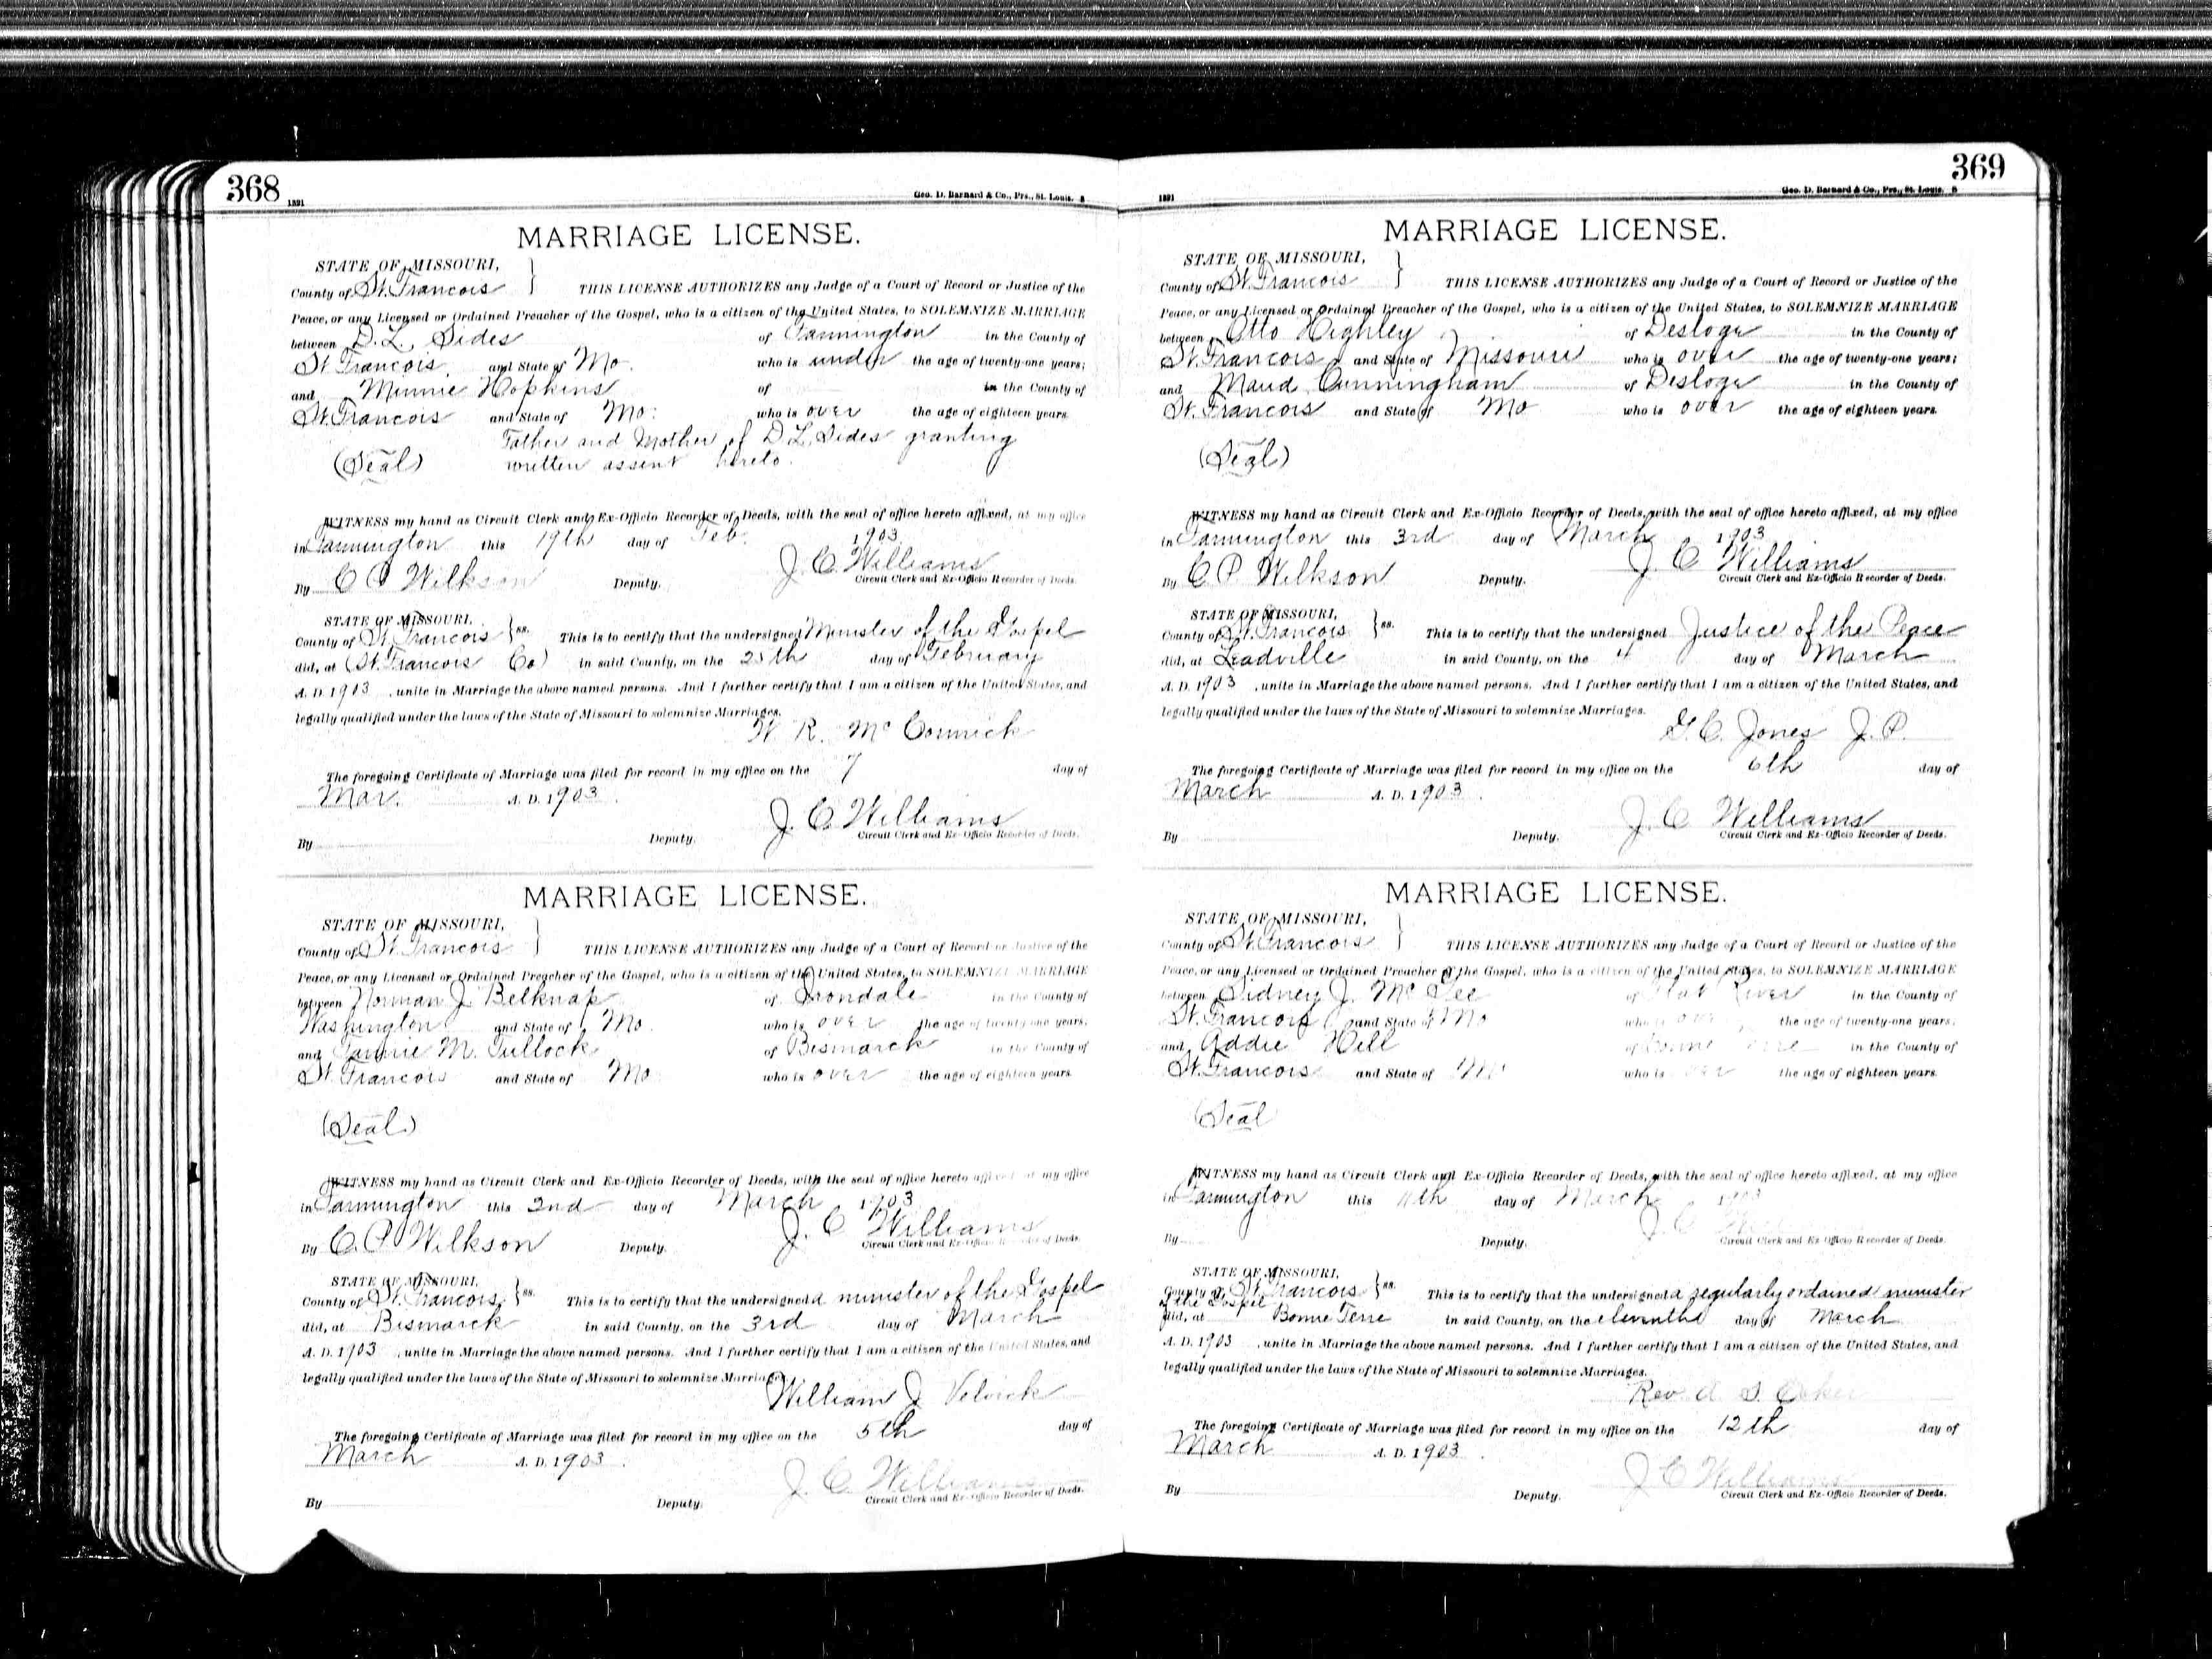 368
1891
Geo. D. Barnard & Co., Prs., St. Louis. 8
MARRIAGE LICENSE.
STATE OF MISSOURI,
County of St. Francois } THIS LICENSE AUTHORIZES any Judge of a Court of Record or Justice of the
Peace, or any Licensed or Ordained Preacher of the Gospel, who is a citizen of the United States, to SOLEMNIZE MARRIAGE
between D. L. Sides of Farmington in the County of
St. Francois and State of Mo. who is under the age of twenty-one years;
and Minnie Hopkins of in the County of
St. Francois and State of Mo. who is over the age of eighteen years.
Father and Mother of D L Sides granting
(Seal) written assent hereto.
WITNESS my hand as Circuit Clerk and Ex-Officio Recorder of Deeds, with the seal of office hereto affixed, at my office
in Farmington this 19th day of Feb. 1903.
J. C. Williams
By C P Wilkson Deputy. Circuit Clerk and Ex-Officio Recorder of Deeds.
STATE OF MISSOURI,
County of St. Francois } ss. This is to certify that the undersigned Minister of the Gospel
did, at (St. Francois Co) in said County, on the 25th day of February
A. D. 1903, unite in Marriage the above named persons. And I further certify that I am a citizen of the United States, and
legally qualified under the laws of the State of Missouri to solemnize Marriages.
W R. McCormick
The foregoing Certificate of Marriage was filed for record in my office on the 7 day of
Mar. A. D. 1903.
J. C. Williams
By Deputy. Circuit Clerk and Ex-Officio Recorder of Deeds.
MARRIAGE LICENSE.
STATE OF MISSOURI,
County of St. Francois } THIS LICENSE AUTHORIZES any Judge of a Court of Record or Justice of the
Peace, or any Licensed or Ordained Preacher of the Gospel, who is a citizen of the United States, to SOLEMNIZE MARRIAGE
between Norman J. Belknap of Irondale in the County of
Washington and State of Mo. who is over the age of twenty-one years;
and Fannie M. Tullock of Bismarck in the County of
St. Francois and State of Mo who is over the age of eighteen years.
(Seal)
WITNESS my hand as Circuit Clerk and Ex-Officio Recorder of Deeds, with the seal of office hereto affixed at my office
in Farmington this 2nd day of March 1903
J. C Williams
By C. P Wilkson Deputy. Circuit Clerk and Ex-Officio Recorder of Deeds.
STATE OF MISSOURI,
County of St. Francois } ss. This is to certify that the undersigned a minister of the Gospel
did, at Bismarck in said County, on the 3rd day of March
A. D. 1903, unite in Marriage the above named persons. And I further certify that I am a citizen of the United States, and
legally qualified under the laws of the State of Missouri to solemnize Marriages.
William J
The foregoing Certificate of Marriage was filed for record in my office on the 5th day of
March A. D. 1903.
J. C. Williams
By Deputy. Circuit Clerk and Ex-Officio Recorder of Deeds.
369
1891
Geo. D. Barnard & Co., Prs., St. Louis. 8
MARRIAGE LICENSE.
STATE OF MISSOURI,
County of St. Francois } THIS LICENSE AUTHORIZES any Judge of a Court of Record or Justice of the
Peace, or any Licensed or Ordained Preacher of the Gospel, who is a citizen of the United States, to SOLEMNIZE MARRIAGE
between Otto Highley of Desloge in the County of
St. Francois and State of Missouri who is over the age of twenty-one years;
and Maud Cunningham of Desloge in the County of
St. Francois and State of Mo who is over the age of eighteen years.
(Seal)
WITNESS my hand as Circuit Clerk and Ex-Officio Recorder of Deeds, with the seal of office hereto affixed, at my office
in Farmington this 3rd day of March 1903
J. C Williams
By C P Wilkson Deputy. Circuit Clerk and Ex-Officio Recorder of Deeds.
STATE OF MISSOURI,
County of St. Francois } ss. This is to certify that the undersigned Justice of the Peace
did, at Leadville in said County, on the 4 day of March
A. D. 1903, unite in Marriage the above named persons. And I further certify that I am a citizen of the United States, and
legally qualified under the laws of the State of Missouri to solemnize Marriages.
G. C. Jones J. P.
The foregoing Certificate of Marriage was filed for record in my office on the 6th day of
March A. D. 1903.
J. C Williams
By Deputy. Circuit Clerk and Ex-Officio Recorder of Deeds.
MARRIAGE LICENSE.
STATE OF MISSOURI,
County of St. Francois } THIS LICENSE AUTHORIZES any Judge of a Court of Record or Justice of the
Peace, or any Licensed or Ordained Preacher of the Gospel, who is a citizen of the United States, to SOLEMNIZE MARRIAGE
between Sidney J. McGee of Flat River in the County of
St. Francois and State of Mo who is over the age of twenty-one years;
and Addie Hill of Bonne Terre in the County of
St. Francois and State of Mo who is over the age of eighteen years.
(Seal
WITNESS my hand as Circuit Clerk and Ex-Officio Recorder of Deeds, with the seal of office hereto affixed, at my office
in Farmington this 11th day of March 1903
J. C
By Deputy. Circuit Clerk and Ex-Officio Recorder of Deeds.
STATE OF MISSOURI,
County of St. Francois } ss. This is to certify that the undersigned a regularly ordained minister
of the Gospel
did, at Bonne Terre in said County, on the eleventh day of March
A. D. 1903, unite in Marriage the above named persons. And I further certify that I am a citizen of the United States, and
legally qualified under the laws of the State of Missouri to solemnize Marriages.
Rev. A S.
The foregoing Certificate of Marriage was filed for record in my office on the 12th day of
March A. D. 1903.
J C Williams
By Deputy. Circuit Clerk and Ex-Officio Recorder of Deeds.